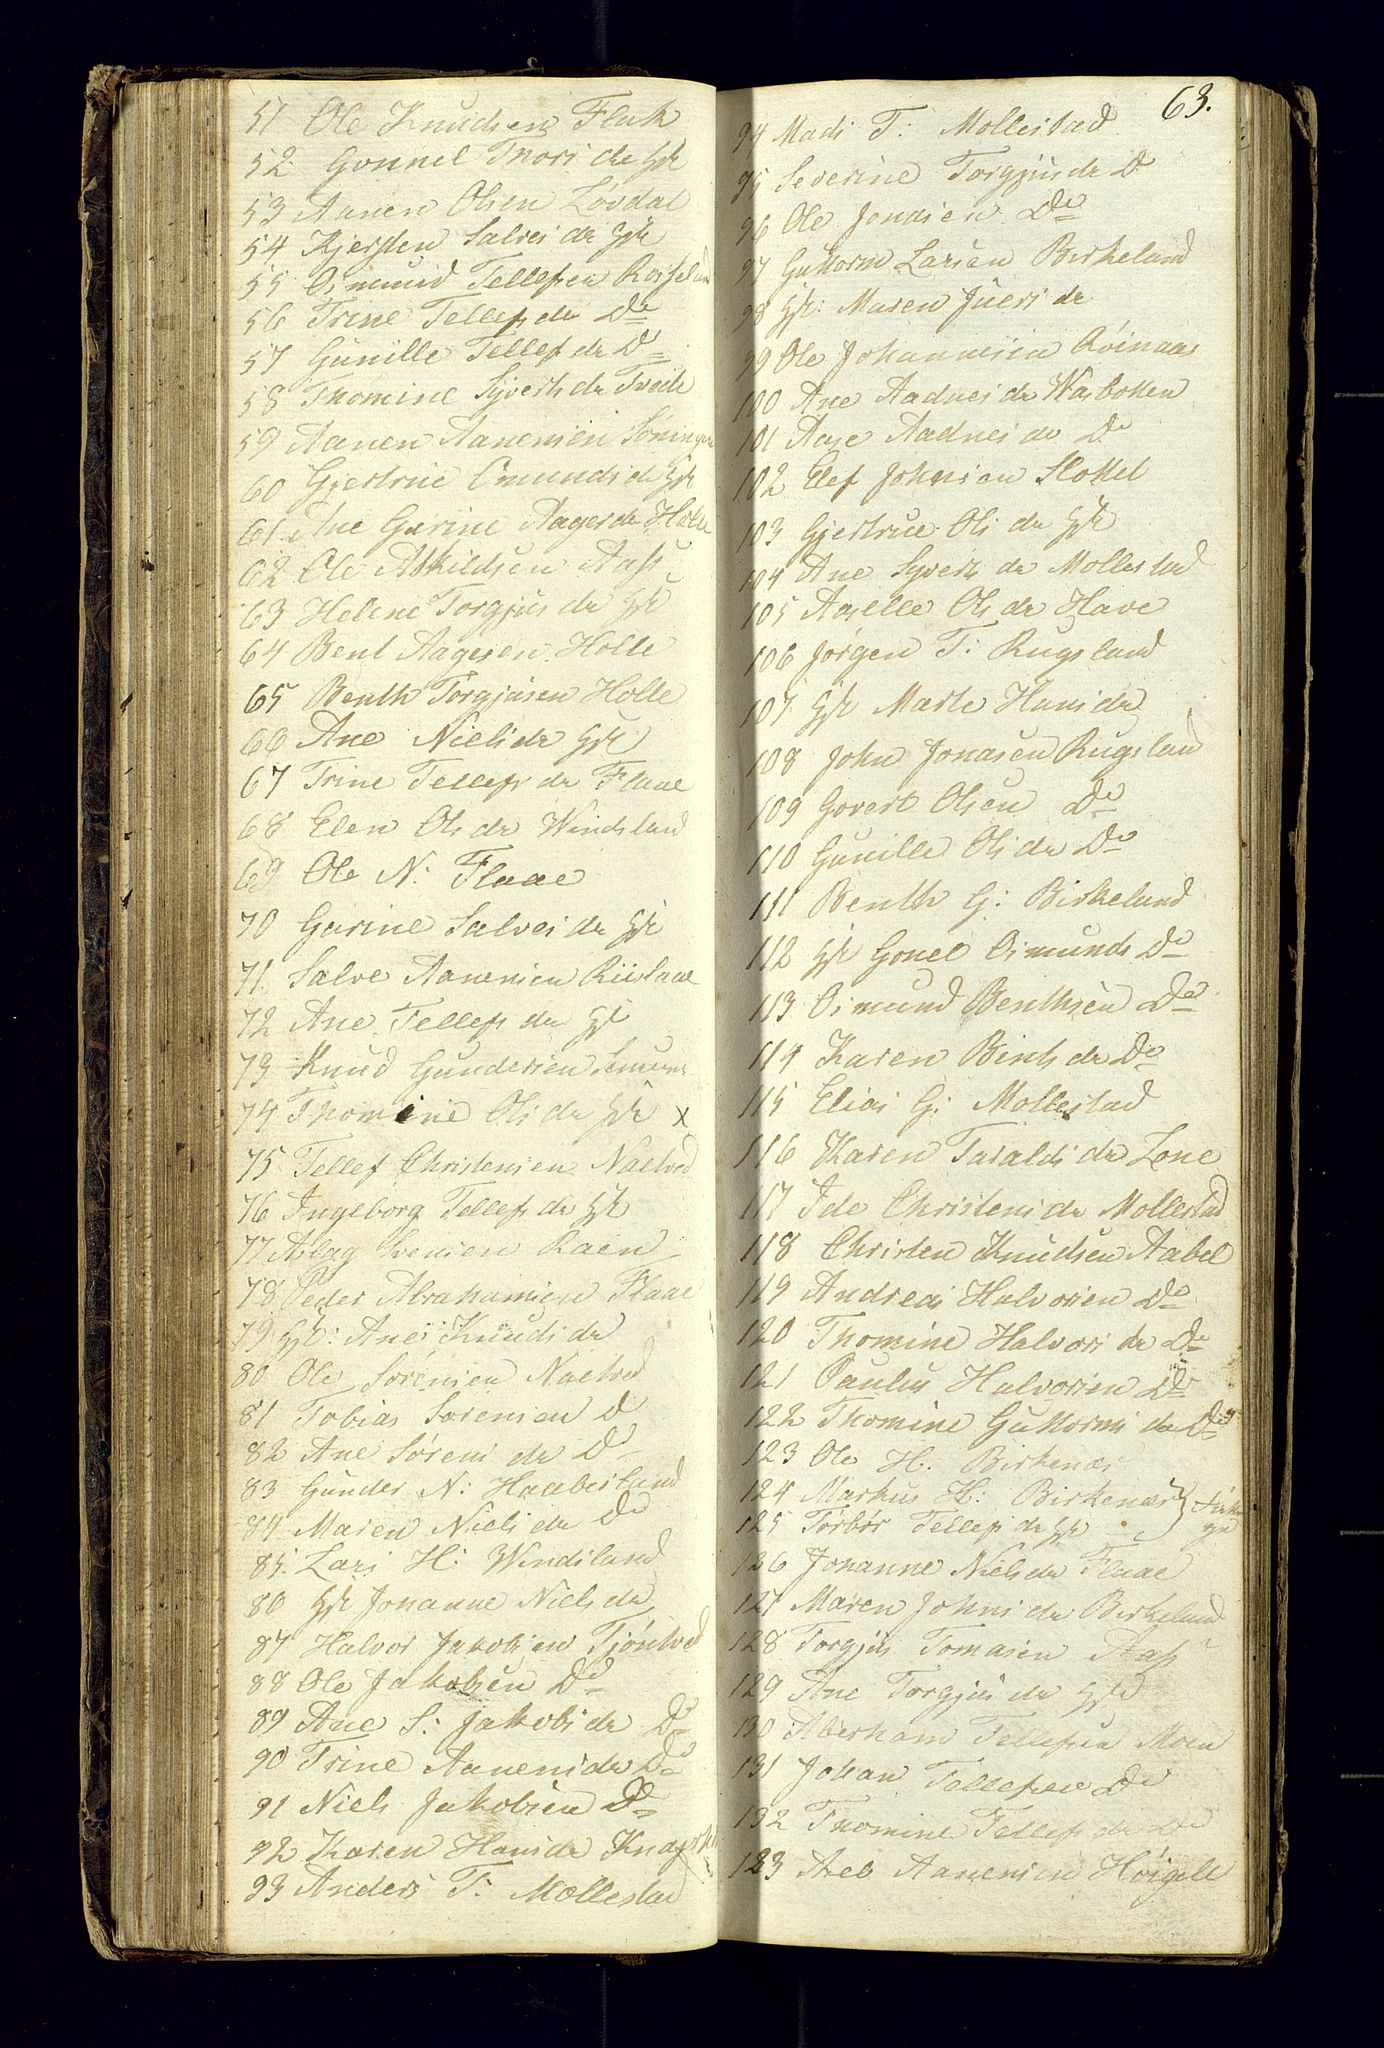 51 Ole Knudsen Flak
52 Gonnel Thors dr Hst
53 Aanen Olsen Løvdal
54 Kjersten Salves dr Hst
55 Osmund Tellefsen Rosseland
56 Trine Tellefs dr Do
57 Gunille Tellefs dr Do
58 Thomine Syverts dr Tveite
59 Aanen Aanensen
60 Gjertrue Omunds dr Hst
61 Ane Gurine Aages dr Holle
62 Ole Askildsen Aass
63 Helene Torgjus dr Hst
64 Bent Aagesen Holle
65 Benth Torgjusen Holle
66 Ane Niels dr Hst
67 Trine Tellefs dr Flaae
68 Elen Ols dr Windsland
69 Ole N: Flaae
70 Gurine Salves dr Hst
71 Salve Aanensen Riislaae
72 Ane Tellefs dr Hst
73 Knud Gundersen
74 Thomine Ols dr Hst x
75 Tellef Christensen Naeltved
76 Ingeborg Tellefs dr Hst
77 Aslag Svensen Raen
78 Peder Abrahamsen Flaae
79 Hst: Anes Knuds dr
80 Ole Sørensen Naelved
81 Tobias Sørensen D
82 Ane Sørens dr Do
83 Gunder N: Haabesland
84 Maren Niels dr Do
85 Lars H: Windsland
86 Hst Johanne Niels dr
87 Halvor Jakobsen Tjøntved
88 Ole Jakobsen Do
89 Ane S: Jakobs dr Do
90 Trine Aanens dr Do
91 Niels Jakobsen Do
92 Karen Hans dr
93 Anders T: Mollestad
63.
94 Mads T: Mollestad
95 Severine Torgjus dr D
96 Ole Jonasen Do
97 Guttorm Larsen Birkeland
98 Hst: Maren Juers dr
99 Ole Johannesen Røinaas
100 Ane Aadnes dr Wasbotten
101 Aase Aadnes dr Do
102 Elef Johnsen Slottet
103 Gjertrue Ols dr Hst
104 Ane Syverts dr Mollestad
105 Aaselle Ols dr Have
106 Jørgen T: Rugsland
107 Hst Marte Hans dr
108 John Jonasen Rugsland
109 Govert Olsen Do
110 Gunille Ols dr Do
111 Benth G: Birkeland
112 Hst Gonel Osmunds Do
113 Osmund Benthsen Do
114 Karen Bents dr Do
115 Elias G: Mollestad
116 Karen Taralds dr Lone
117 Ide Christens dr Mollestad
118 Christen Knudsen Aabel
119 Andreas Halvorsen Do
120 Thomine Halvors dr Do
121 Paulus Halvorsen Do
122 Thomine Guttorms dr Do
123 Ole H: Birkenæs
124 Markus H: Birkenæs
125 Torbør Tellefs dr Hst
126 Johanne Niels dr Flaae
127 Maren Johns dr Birkeland
128 Torgjus Tomasen Aass
129 Ane Torgjus dr Hst
130 Aberham Tellefsen Moen
131 Johan Tellefsen Do
132 Thomine Tellefs dr Do
123 Aanensen Høigilt